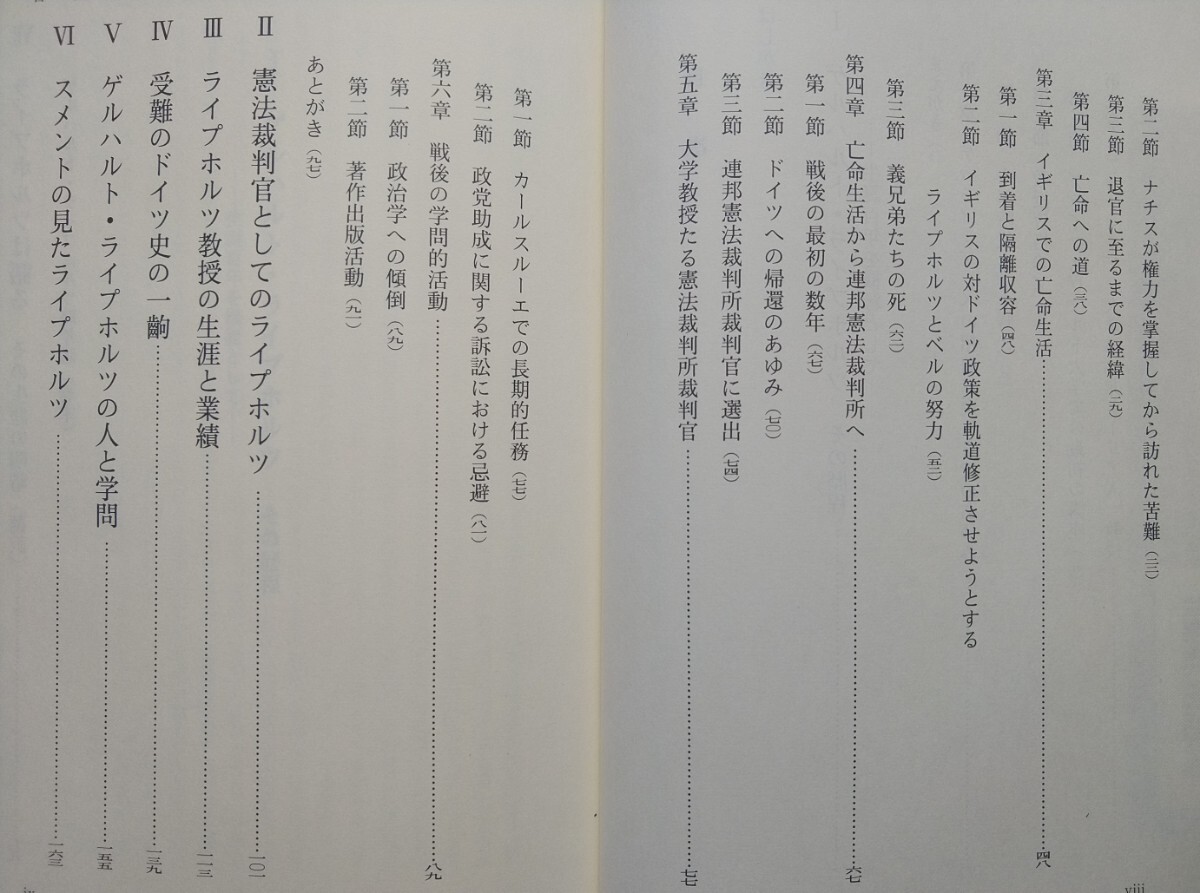 第二節　ナチスが権力を掌握してから訪れた苦難（二三）
第三節　退官に至るまでの経緯（二九）
第四節　亡命への道（三八）
第三章　イギリスでの亡命生活……四八
第一節　到着と隔離収容（四八）
第二節　イギリスの対ドイツ政策を軌道修正させようとする
ライプホルツとベルの努力（五二）
第三節　義兄弟たちの死（六二）
第四章　亡命生活から連邦憲法裁判所へ……六七
第一節　戦後の最初の数年（六七）
第二節　ドイツへの帰還のあゆみ（七〇）
第三節　連邦憲法裁判所裁判官に選出（七四）
第五章　大学教授たる憲法裁判所裁判官……七七
viii
第一節　カールスルーエでの長期的任務（七七）
第二節　政党助成に関する訴訟における忌避（八一）
第六章　戦後の学問的活動……八九
第一節　政治学への傾倒（八九）
第二節　著作出版活動（九一）
あとがき（九七）
Ⅱ　憲法裁判官としてのライプホルツ……一〇一
Ⅲ　ライプホルツ教授の生涯と業績……一一三
Ⅳ　受難のドイツ史の一齣……一三九
Ⅴ　ゲルハルト・ライプホルツの人と学問……一五五
Ⅵ　スメントの見たライプホルツ……一六三
ix